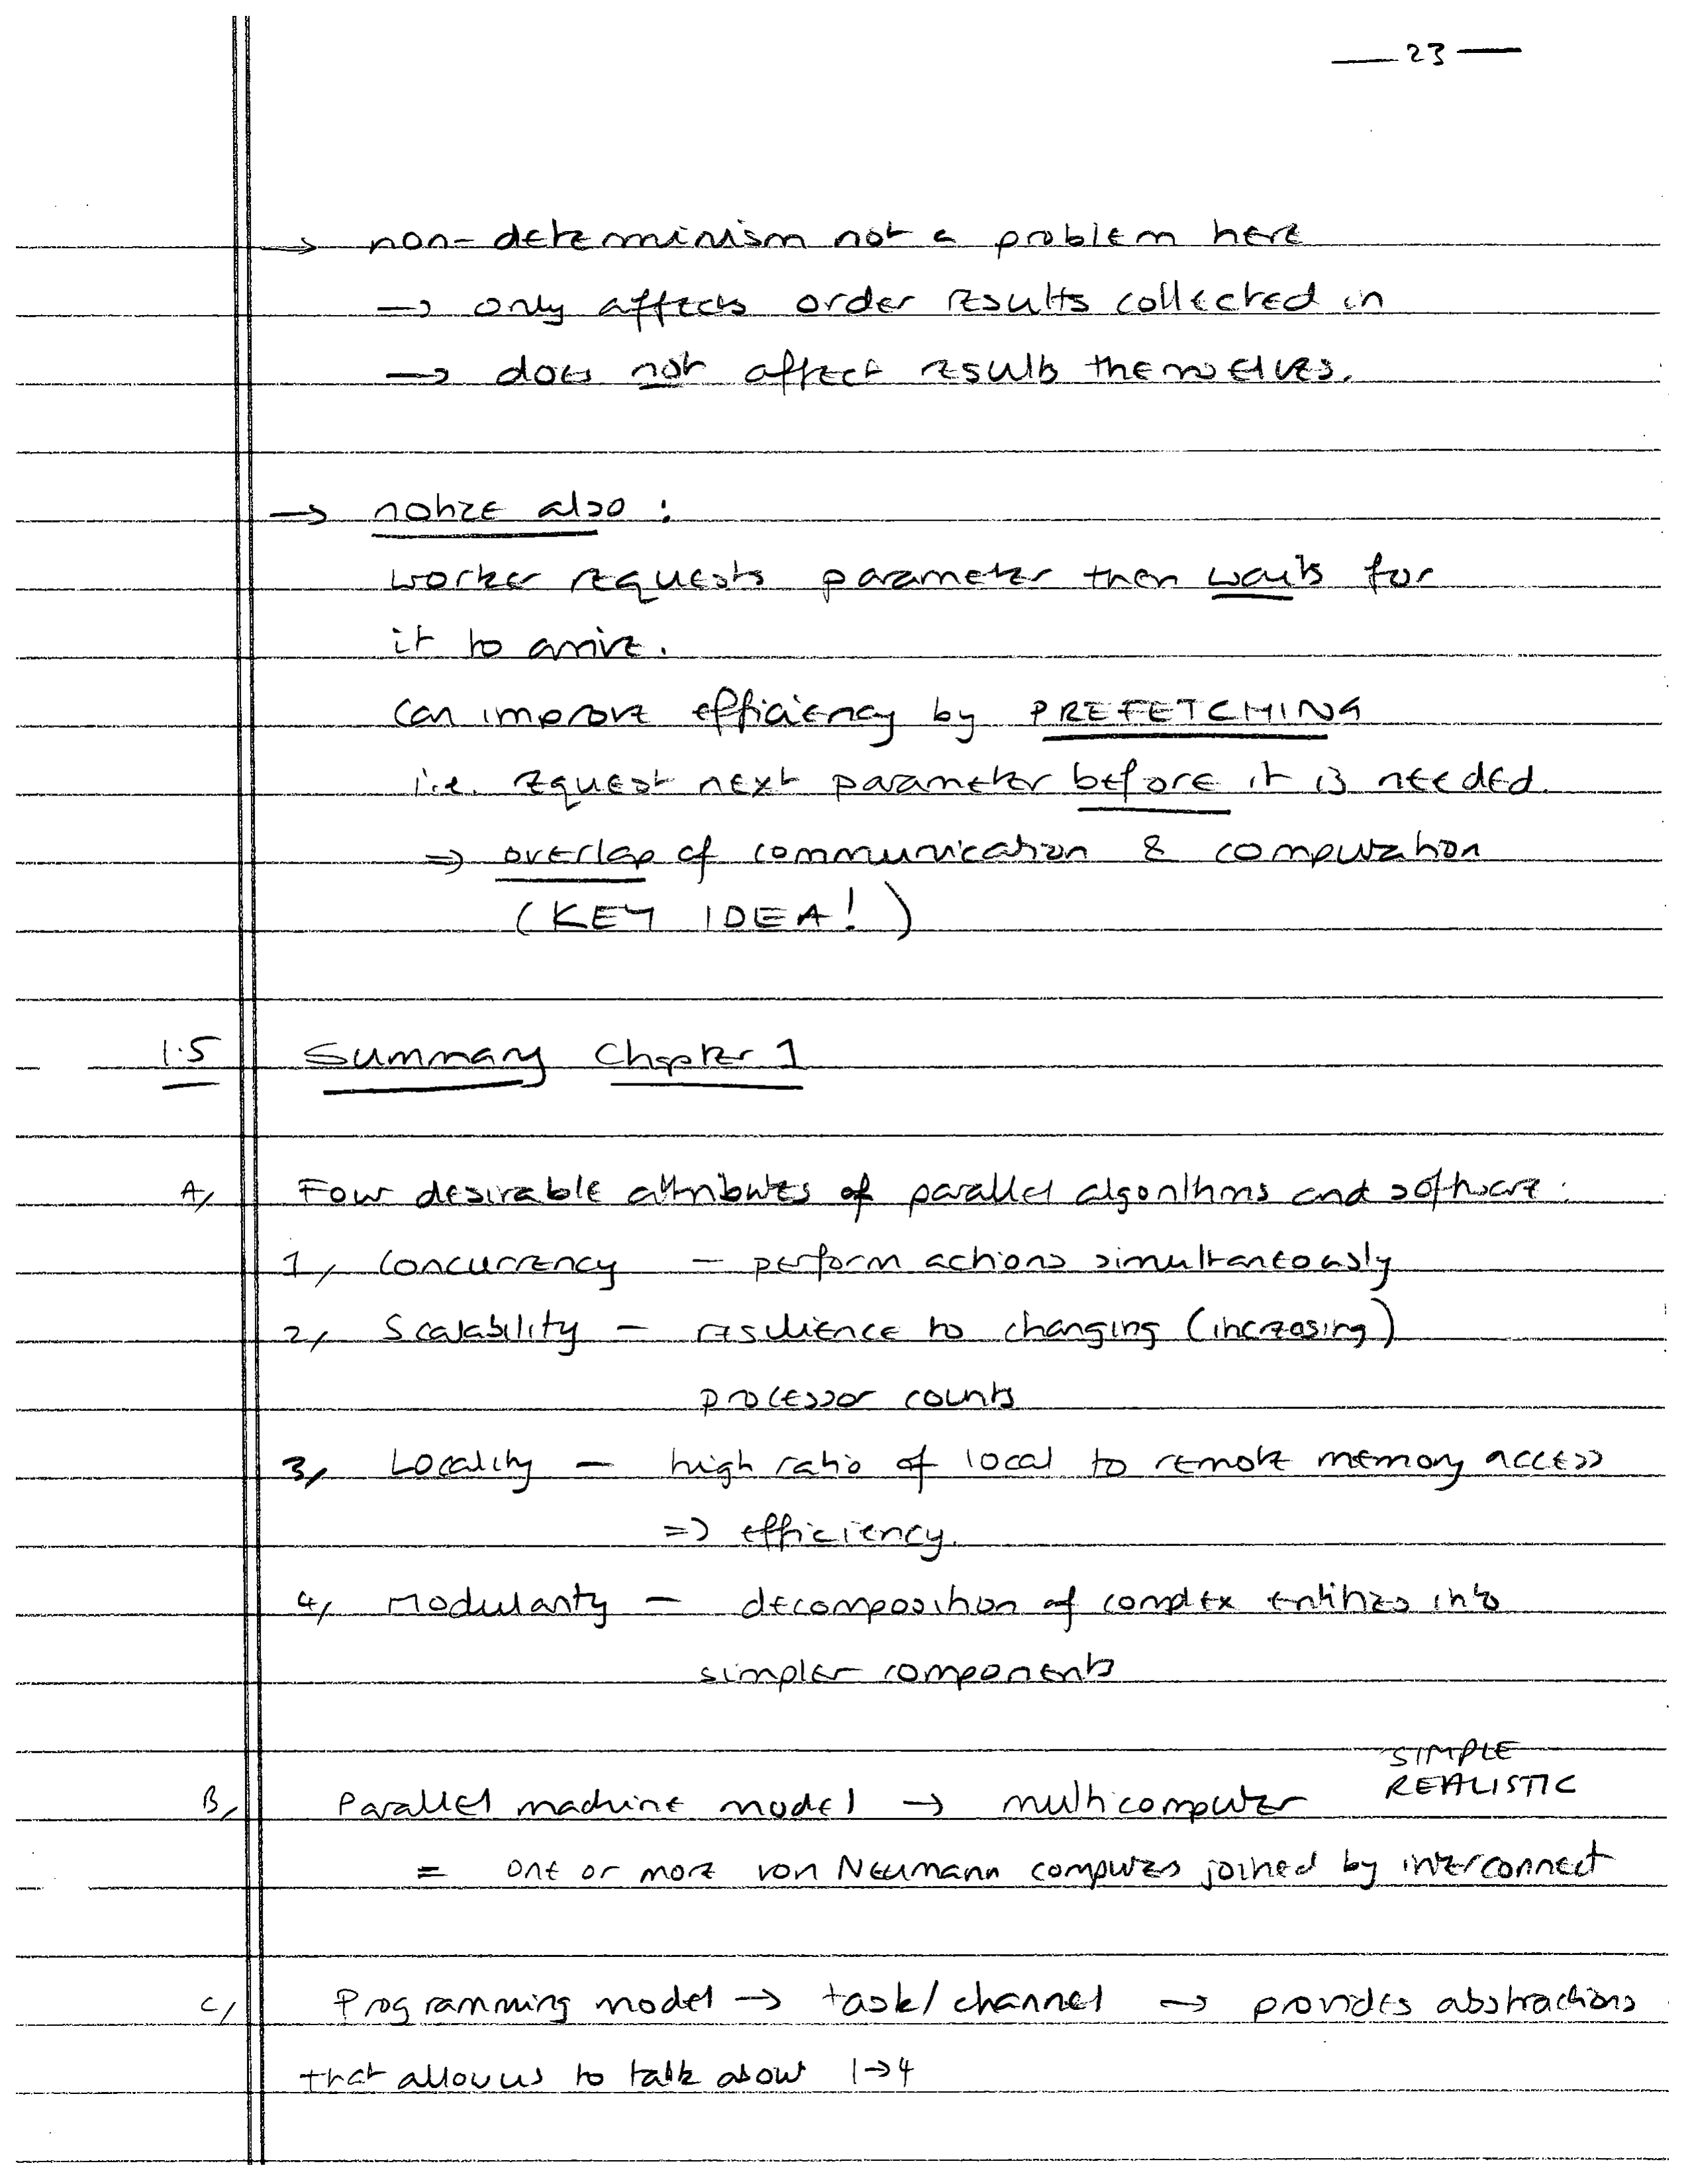 — 23 —
→ non-determinism not a problem here
→ only affects order results collected in
→ does not affect results themselves.
→ notice also :
worker requests parameter then waits for
it to arrive.
Can improve efficiency by PREFETCHING
i.e. request next parameter before it is needed.
⇒ overlap of communication & computation
(KEY IDEA!)
1.5 Summary Chapter 1
A, Four desirable attributes of parallel algorithms and software:
1, Concurrency – perform actions simultaneously
2, Scalability – resilience to changing (increasing)
processor counts
3, Locality – high ratio of local to remote memory access
⇒ efficiency.
4, Modularity – decomposition of complex entities into
simpler components
SIMPLE
REALISTIC
B, Parallel machine model → multicomputer
= one or more von Neumann computers joined by interconnect
C, Programming model → task/channel → provides abstractions
that allow us to talk about 1→4